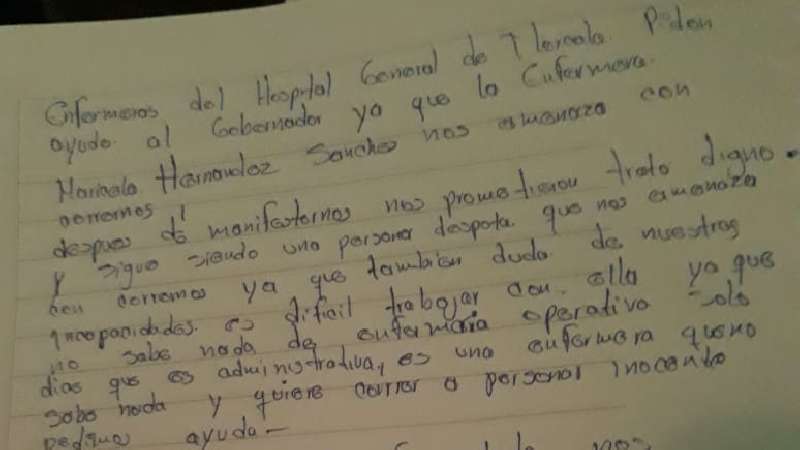 Enfermeros del Hospital General de Tlaxcala. Piden
ayuda al Gobernador ya que la Enfermera.
Maricela Hernandez Sanchez nos amenaza con
corrernos
despues de manifestarnos nos prometieron trato digno.
y sigue siendo una persona despota que nos amenaza
con corrernos ya que tambien duda de nuestras
incapacidades. es dificil trabajar con. ella ya que
no sabe nada de enfermeria operativa solo
dias que es administrativa, es una enfermera que no
sabe nada y quiere correr a personal inocente
pedimos ayuda-
nos